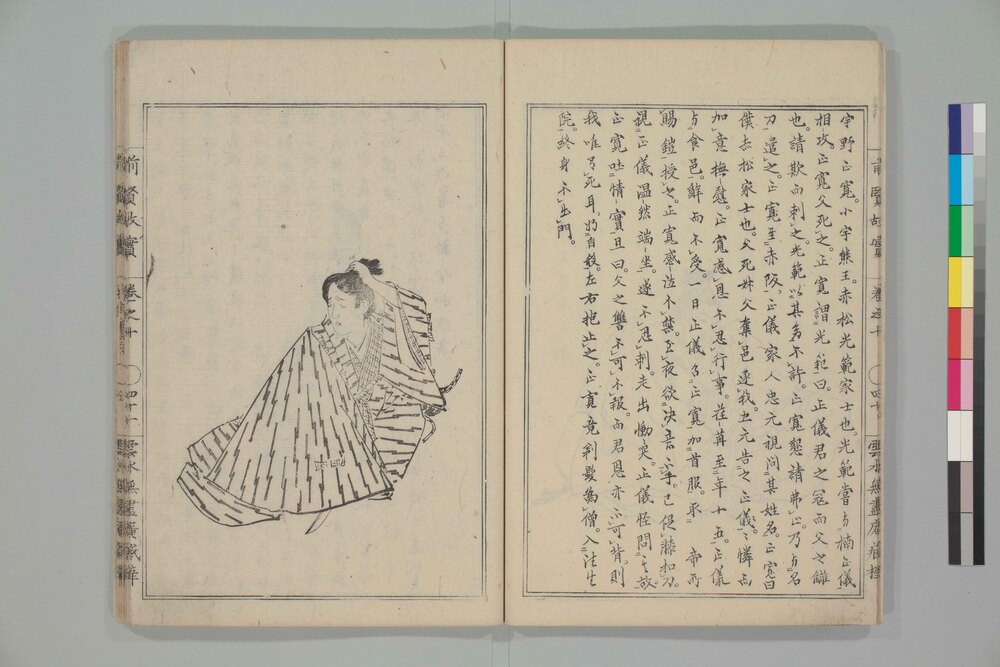 宇野正寛。小字熊王。赤松光範家士也。光範嘗与楠正儀
相攻。正寛父死之。正寛謂光範曰。正儀君之寇而父之讎
也。請欺而刺之。光範以其多不許。正寛懇請弗止。乃与名
刀遣之。正寛至赤阪。正儀家人忠元視問其姓名。正寛曰
僕赤松家士也。父死叔父奪邑逐我。忠元告之正儀。正儀憐而
加意撫慰。正寛感恩不忍行事。荏苒至年十五。正儀
与食邑。辭而不受。一日正儀召正寛加首服。取帝所
賜鎧授之。正寛感泣不禁。至夜欲決意 。已促膝和刀。
視正儀温然端坐。遂不忍刺。走出慟哭。正儀怪問之。
正寛吐情實且曰。父之讐不可不報。而君恩亦不可背。則
我唯有死耳。乃自殺。左右抱止之。正寛竟剃髪爲僧。入往生
院。終身不出門。
前賢故實
巻之十
四十
雲水無盡庵藏
前賢故實
巻之十
四十
雲水無盡庵藏